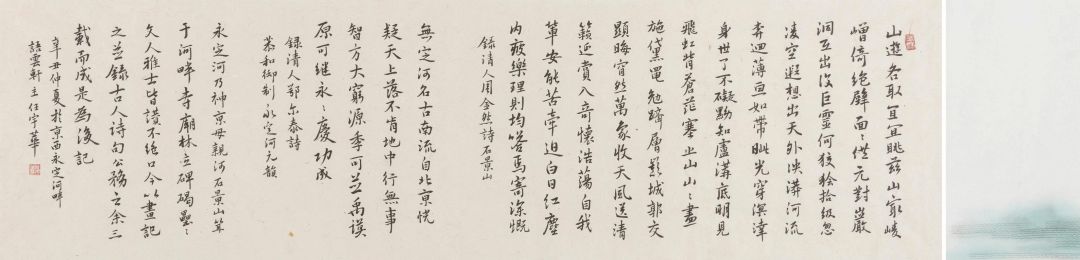 山遊各取宜宜眺茲山最峻
嶒倚絕壁面面供元對巖
洞互出沒巨靈何狡獪拾級忽
凌空遐想出天外決漭河流
奔迴薄魚如帶眺光穿溟漳
身世了不礙黝知盧溝底明見
飛虹背蒼茫塞上山山山盡
施黛罨勉躋層影城郭交
顯晦窅然萬象收天風送清
籟延賞入奇懷浩蕩自我
輩安能苦牽迫白日紅塵
內疲樂理則均答焉寄深慨
錄清人用金然詩石景山
無定河名古南流自北京恍
疑天上落不肯地中行無事
智方大窮源委可並禹謨
原可繼永永慶功成
錄清人鄂尔泰詩
恭和御制永定河元韻
永定河乃神京母親河石景山萃
于河畔寺廟林立碑碣壘壘
文人雅士皆讚不絕口今以畫記
之並錄古人詩句公務之余三
載而成是為後記
辛丑仲夏於京西永定河畔
語雲軒主任宇華